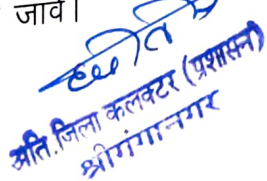 जावे।
अति. जिला कलक्टर (प्रशासन)
श्रीगंगानगर